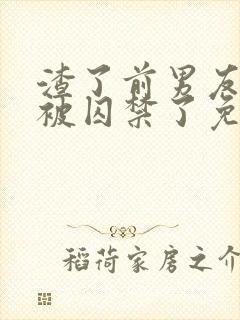 渣了前男友
被囚禁了免
稻荷家房之介